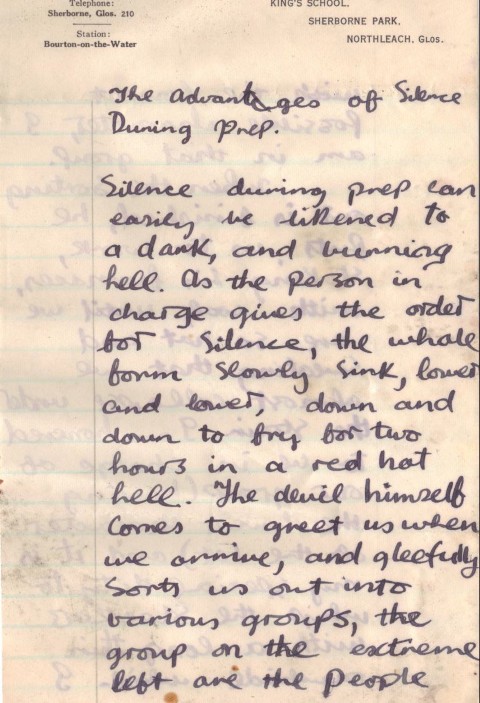 Telephone:
Sherborne, Glos. 210
Station:
Bourton-on-the-Water
KING'S SCHOOL,
SHERBORNE PARK,
NORTHLEACH, GLOS.
The Advantages of Silence
During Prep.
Silence during prep can
easily be likened to
a dark, and burning
hell. As the person in
charge gives the order
for Silence, the whole
form slowly sink, lower
and lower, down and
down to fry for two
hours in a red hot
hell. The devil himself
comes to greet us when
we arrive, and gleefully
sorts us out into
various groups, the
group on the extreme
left are the people